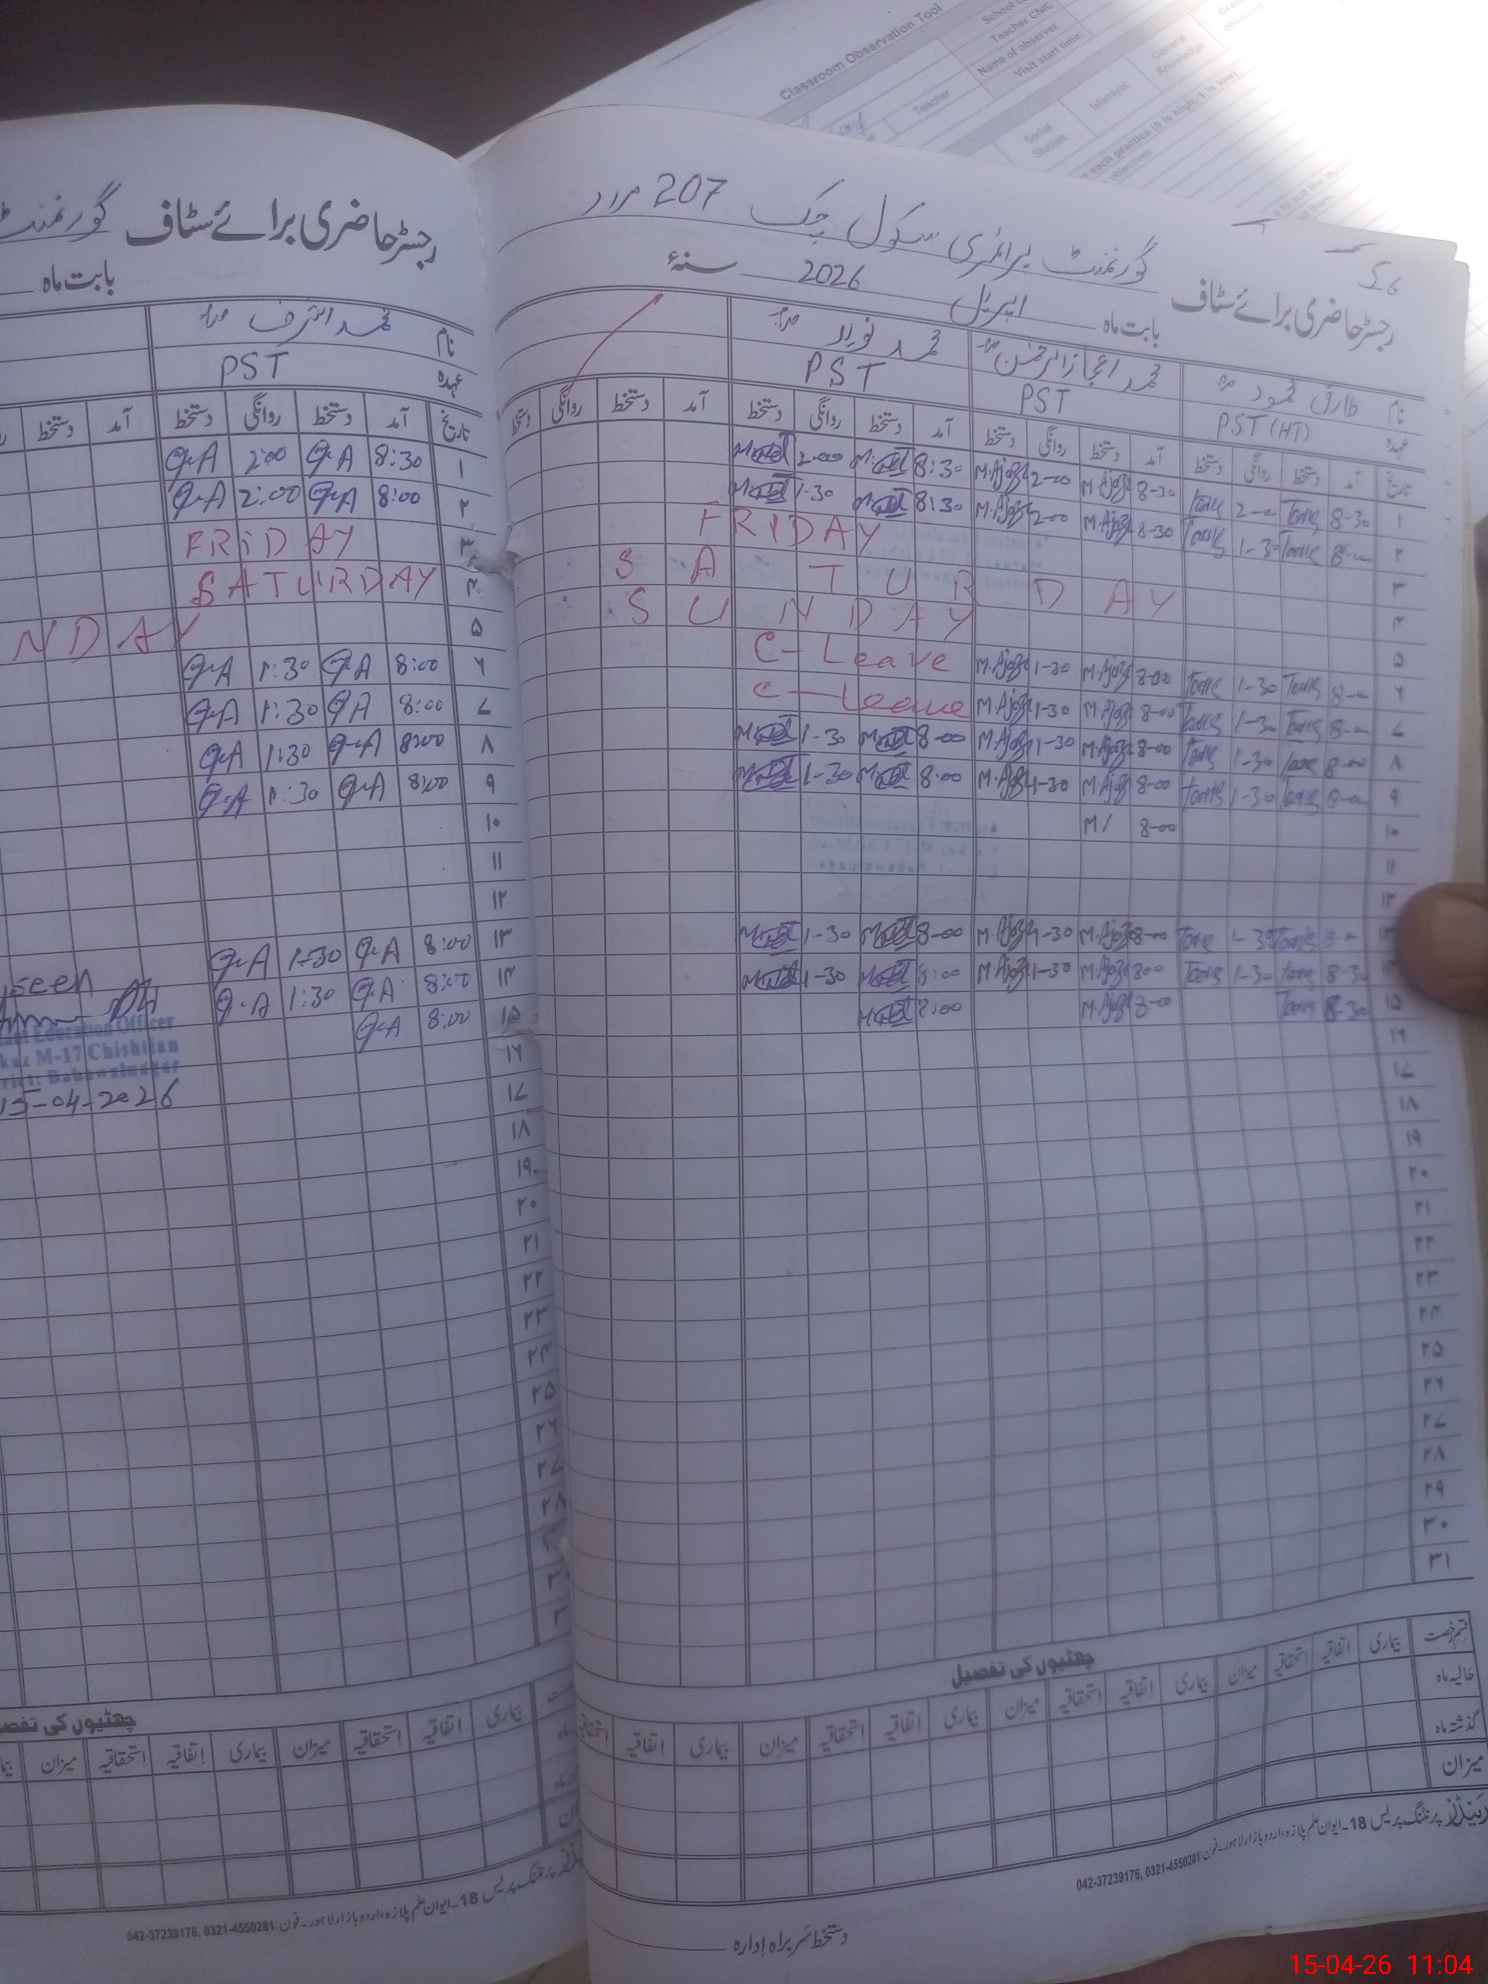 Classroom Observation Tool
Teacher CNIC
Name of observer
Visit start time
Teacher
Social Studies
Islamiat
General Knowledge
رجسٹر حاضری برائے سٹاف گورنمنٹ
بابت ماہ
نام محمد اشرف
عہدہ PST
تاریخ آمد دستخط روانگی دستخط آمد دستخط
۱ 8:30 Q.A 2:00 Q.A
۲ 8:00 Q.A 2:00 Q.A
۳ FRIDAY
۴ SATURDAY
۵ NDAY
۶ 8:00 Q.A 1:30 Q.A
۷ 8:00 Q.A 1:30 Q.A
۸ 8:00 Q.A 1:30 Q.A
۹ 8:00 Q.A 1:30 Q.A
۱۰
۱۱
۱۲
۱۳ 8:00 Q.A 1:30 Q.A
۱۴ 8:00 Q.A 1:30 Q.A
۱۵ 8:00 Q.A
Education Officer
M-17 Chishtian
Bahawalnagar
15-04-2026
۱۶
۱۷
۱۸
۱۹
۲۰
۲۱
۲۲
۲۳
۲۴
۲۵
۲۶
۲۷
۲۸
چھٹیوں کی تفصیل
بیماری اتفاقیہ استحقاقیہ میزان بیماری اتفاقیہ استحقاقیہ میزان
پرنٹنگ پریس 18۔ایوان علم پلازہ اردو بازار لاہور۔فون: 042-37239176, 0321-4550281
گورنمنٹ پرائمری سکول چک 207 مراد
رجسٹر حاضری برائے سٹاف
بابت ماہ اپریل 2026 سنۂ
نام طارق محمود محمد اعجاز الرحمٰن محمد نواز
عہدہ PST (HT) PST PST
تاریخ آمد دستخط روانگی دستخط آمد دستخط روانگی دستخط آمد دستخط روانگی دستخط آمد دستخط روانگی دستخط
۱ 8-30 Tariq 2-00 Tariq 8-30 M.Ajaz 2-00 M.Ajaz 8:30 2-00
۲ 8-00 Tariq 1-30 Tariq 8-30 M.Ajaz 2-00 M.Ajaz 8:30 1-30
۳ FRIDAY
۴ SATURDAY
۵ SUNDAY
۶ 8-00 Tariq 1-30 Tariq 8-00 M.Ajaz 1-30 M.Ajaz C-Leave
۷ 8-00 Tariq 1-30 Tariq 8-00 M.Ajaz 1-30 M.Ajaz C-Leave
۸ 8-00 Tariq 1-30 Tariq 8-00 M.Ajaz 1-30 M.Ajaz 8-00 1-30
۹ 8-00 Tariq 1-30 Tariq 8-00 M.Ajaz 1-30 M.Ajaz 8:00 1-30
۱۰ 8-00 M/
۱۱
۱۲
۱۳ 8-00 Tariq 1-30 Tariq 8-00 M.Ajaz 1-30 M.Ajaz 8-00 1-30
۱۴ 8-30 Tariq 1-30 Tariq 8-00 M.Ajaz 1-30 M.Ajaz 8:00 1-30
۱۵ 8-30 Tariq 8-00 M.Ajaz 8:00
۱۶
۱۷
۱۸
۱۹
۲۰
۲۱
۲۲
۲۳
۲۴
۲۵
۲۶
۲۷
۲۸
۲۹
۳۰
۳۱
چھٹیوں کی تفصیل
قسم رخصت بیماری اتفاقیہ استحقاقیہ میزان بیماری اتفاقیہ استحقاقیہ میزان بیماری اتفاقیہ استحقاقیہ میزان بیماری اتفاقیہ استحقاقیہ
حالیہ ماہ
گذشتہ ماہ
میزان
پرنٹنگ پریس 18۔ایوان علم پلازہ اردو بازار لاہور۔فون: 042-37239176, 0321-4550281
دستخط سربراہ ادارہ
15-04-26 11:04